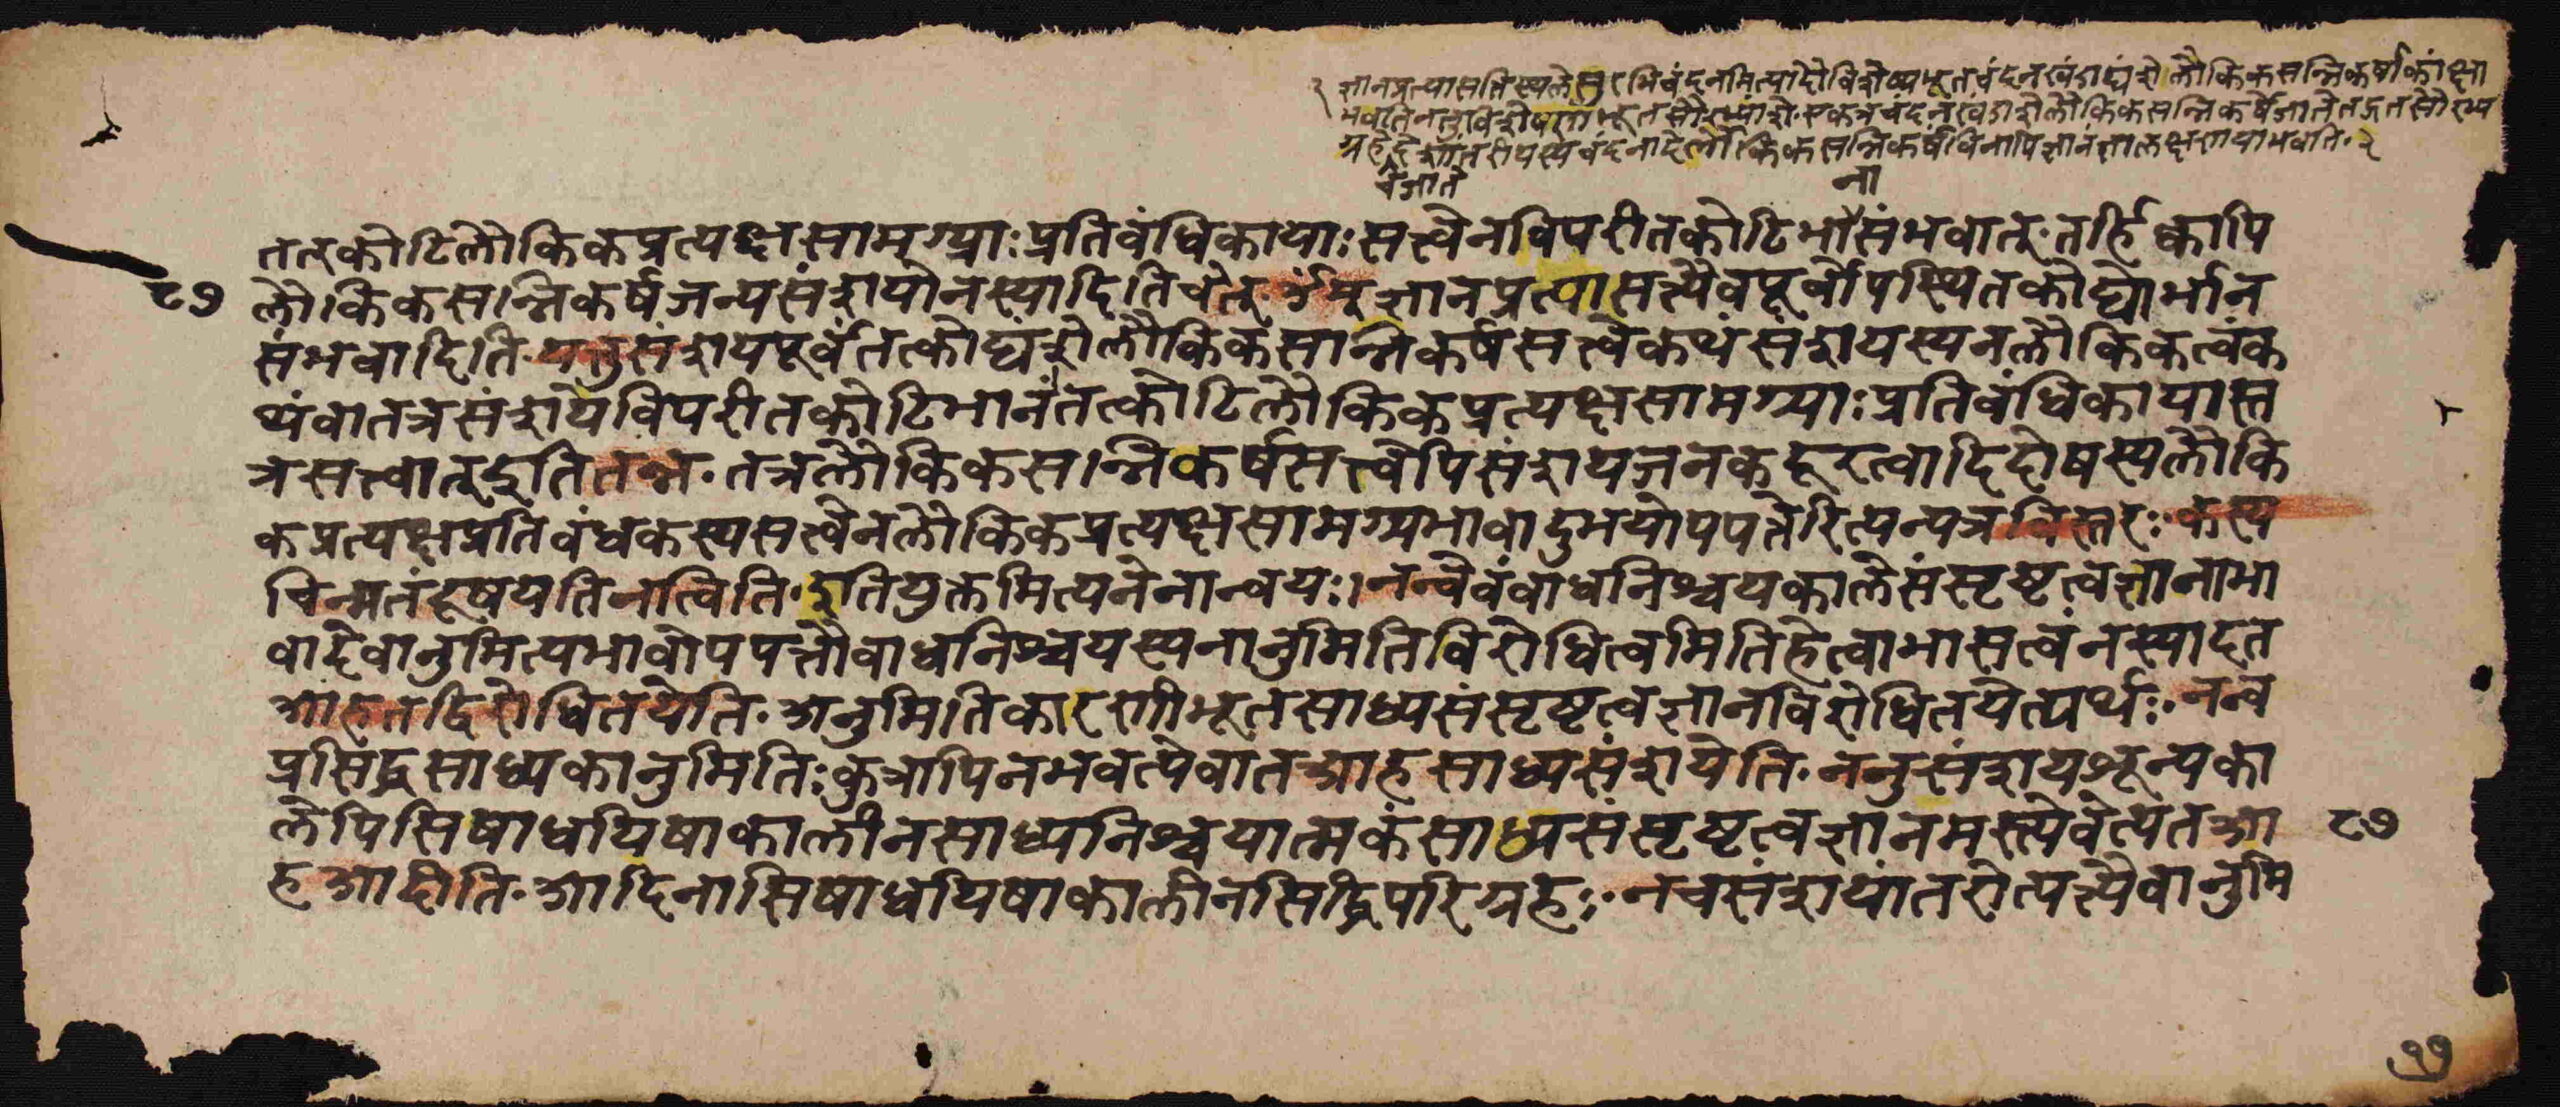 ज्ञानप्रत्यासत्तिस्थले सुरभिचंदनमित्यादौ विशेष्यभूतचंदनखंडाद्यंशे लौकिकसन्निकर्षाकांक्षा
भवति नतु विशेषणीभूतसौरभ्यांशे॰ एकत्र चंदनखंडांशे लौकिकसन्निकर्षे जाते तद्गतसौरभ्य
ग्रहे देशांतरीयस्य चंदनादेर्लौकिकसन्निकर्षं विनापि ज्ञानं ज्ञानलक्षणया भवति॰ २
च जाते
ना
तत्कोटिलौकिकप्रत्यक्षसामग्र्याः प्रतिवंधिकायाः सत्त्वेन विपरीतकोटिभासंभवात्॰ तर्हि क्वापि
८७ लौकिकसन्निकर्षजन्यसंशयो न स्यादिति चेत्॰ ॐम् ज्ञानप्रत्यासत्त्यैव पूर्वोपस्थितकोट्योर्भान
संभवादिति॰ यत्तु संशयपूर्वं तत्कोट्यंशे लौकिकसन्निकर्षसत्त्वे कथं संशयस्य न लौकिकत्वं क
थं वा तत्र संशये विपरीतकोटिभानं तत्कोटिलौकिकप्रत्यक्षसामग्र्याः प्रतिवंधिकायास्त
त्र सत्त्वात् इति तन्न॰ तत्र लौकिकसन्निकर्षसत्त्वेपि संशयजनकदूरत्वादिदोषस्य लौकि
कप्रत्यक्षप्रतिवंधकस्य सत्त्वेन लौकिकप्रत्यक्षसामग्र्यभावादुभयोपपत्तेरित्यन्यत्र विस्तरः॰ कस्य
चिन्मतं दूषयति नत्विति॰ इति युक्तमित्यनेनान्वयः। नन्वेवं वाधनिश्चयकाले संसृष्टत्वज्ञानाभा
वादेवानुमित्यभावोपपत्तौ वाधनिश्चयस्य नानुमितिविरोधित्वमिति हेत्वाभासत्वं न स्यादत
आह तद्विरोधितयेति॰ अनुमितिकारणीभूतसाध्यसंसृष्टत्वज्ञानविरोधितयेत्यर्थः॰ नन्व
प्रसिद्धसाध्यकानुमितिः कुत्रापि न भवत्येवात आह साध्यसंशयेति॰ ननु संशयशून्यका
लेपि सिषाधयिषाकालीनसाध्यनिश्चयात्मकं साध्यसंसृष्टत्वज्ञानमस्त्येवेत्यत आ ८७
ह आदीति॰ आदिना सिषाधयिषाकालीनसिद्धिपरिग्रहः॰ न च संशयांतरोत्पत्त्यैवानुमि
७७